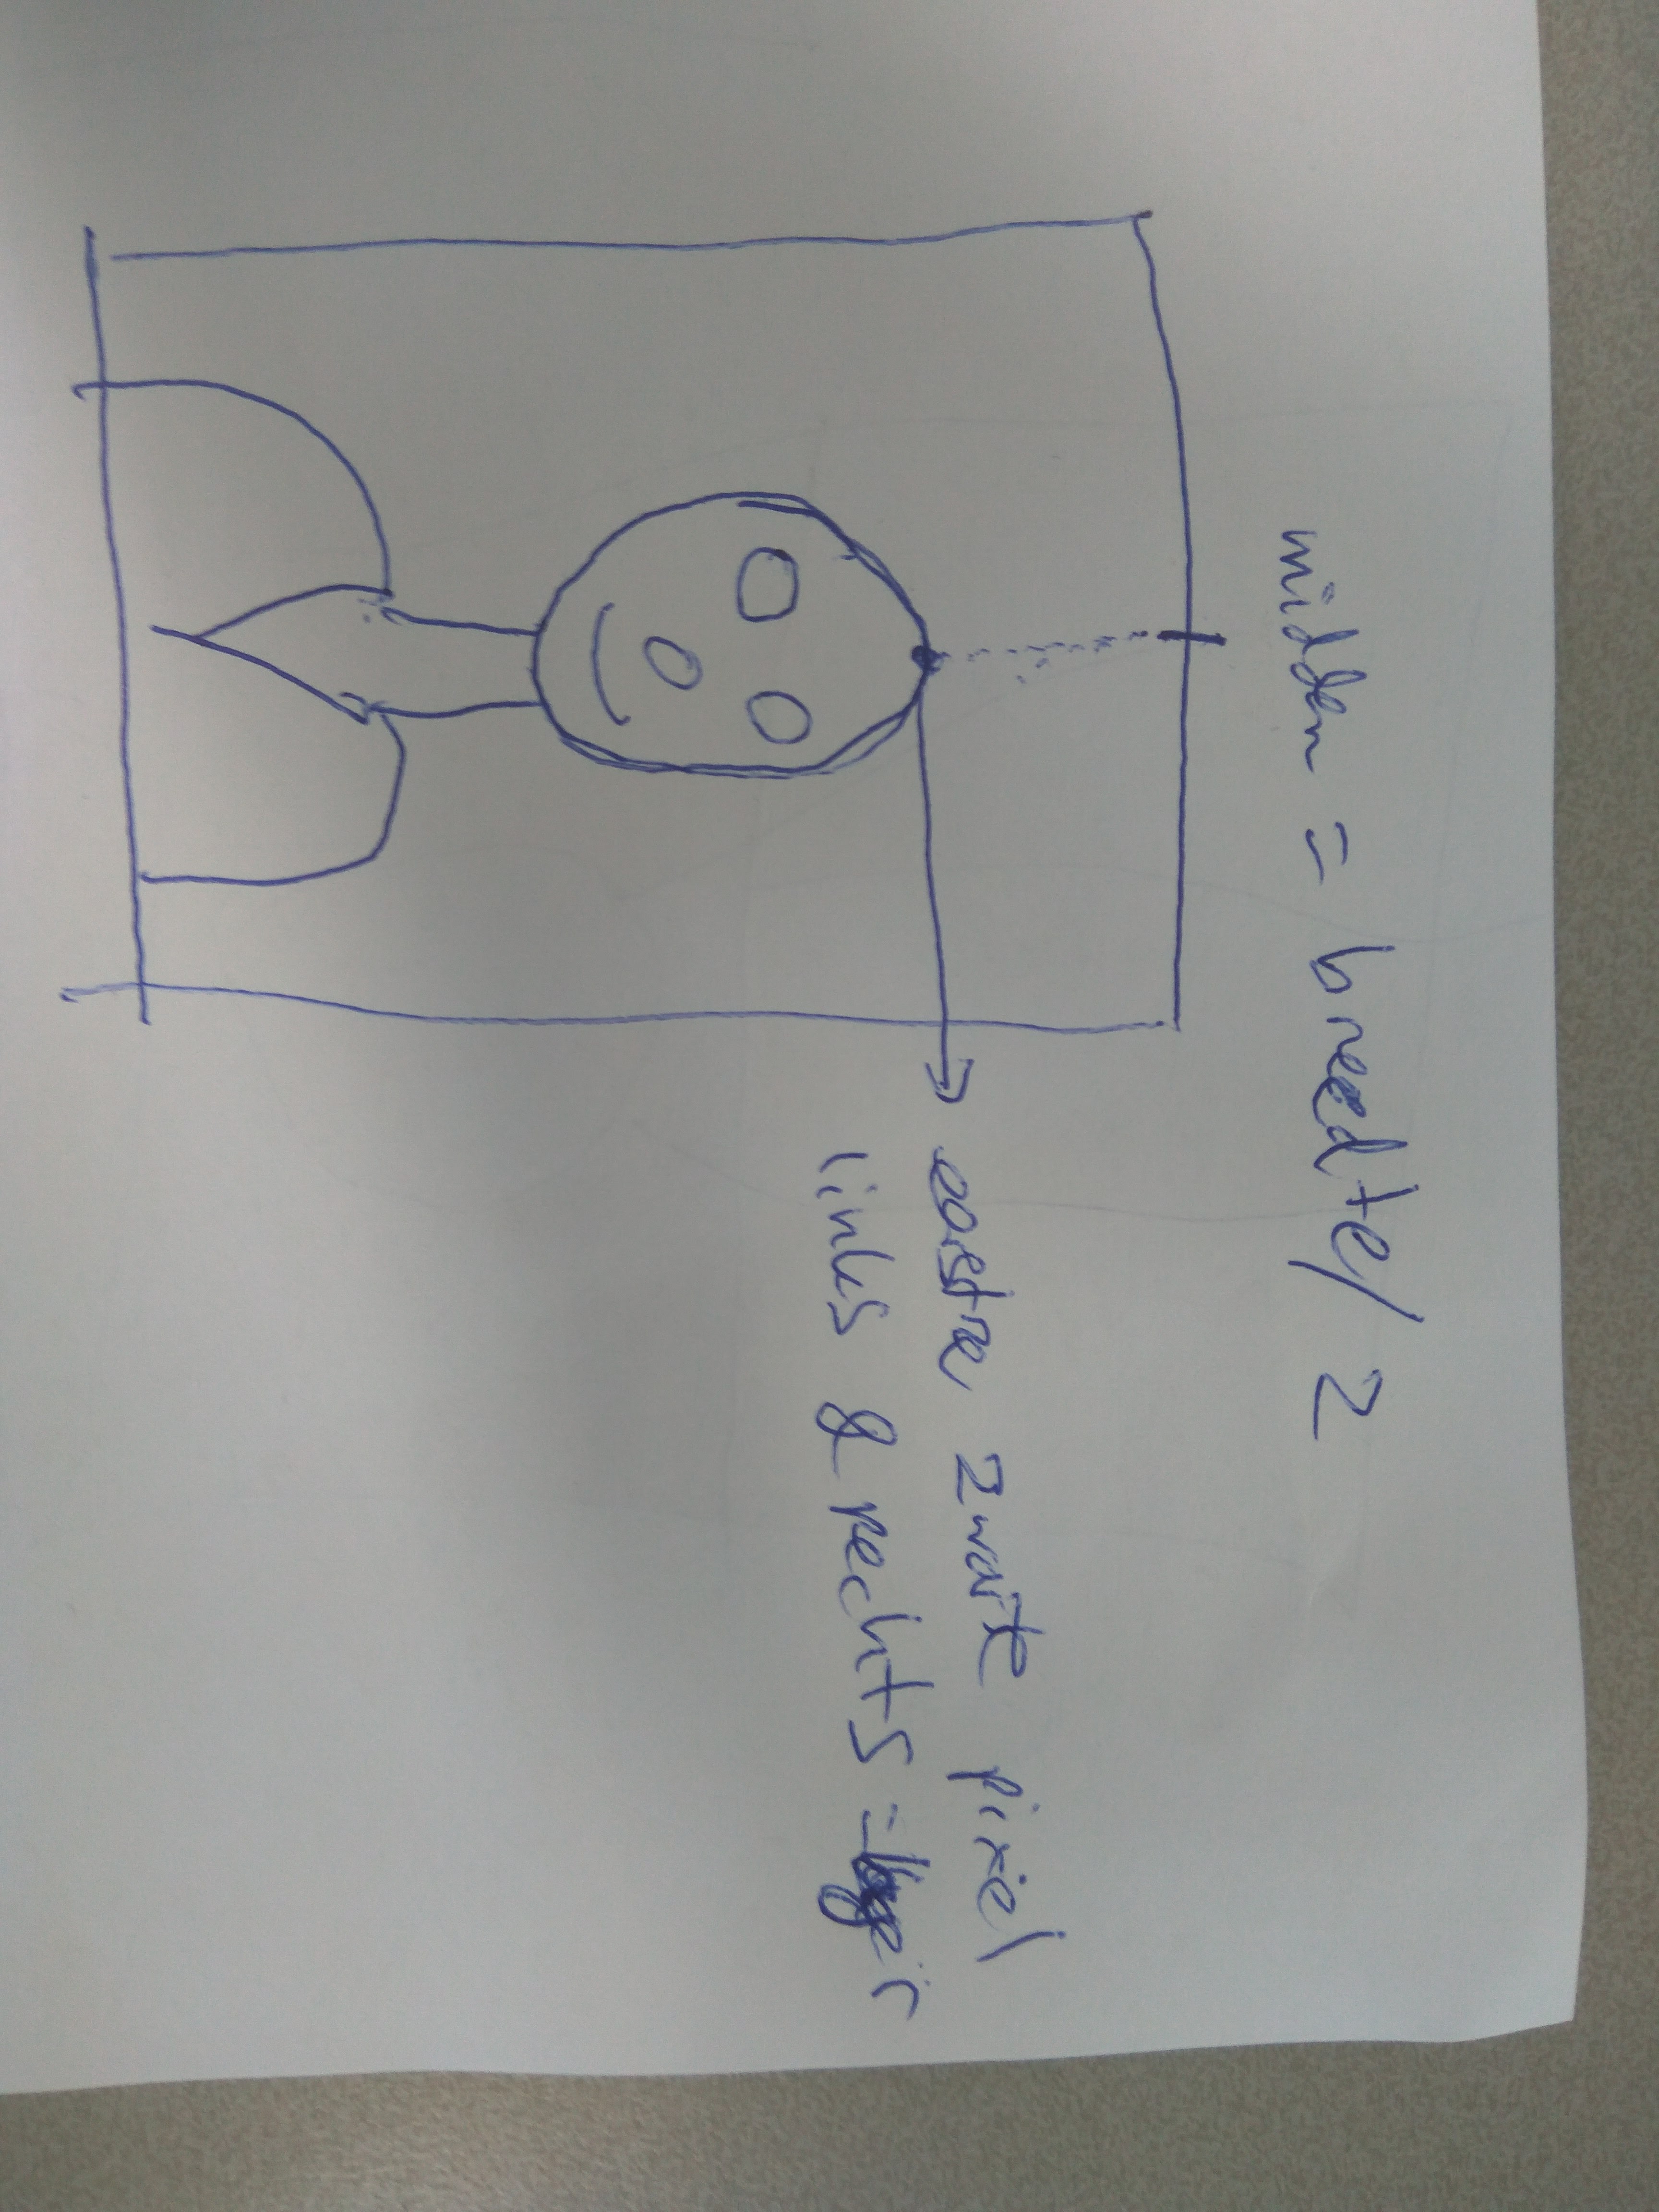 midden = breedte/2
eerste zwarte pixel
links & rechts = lager